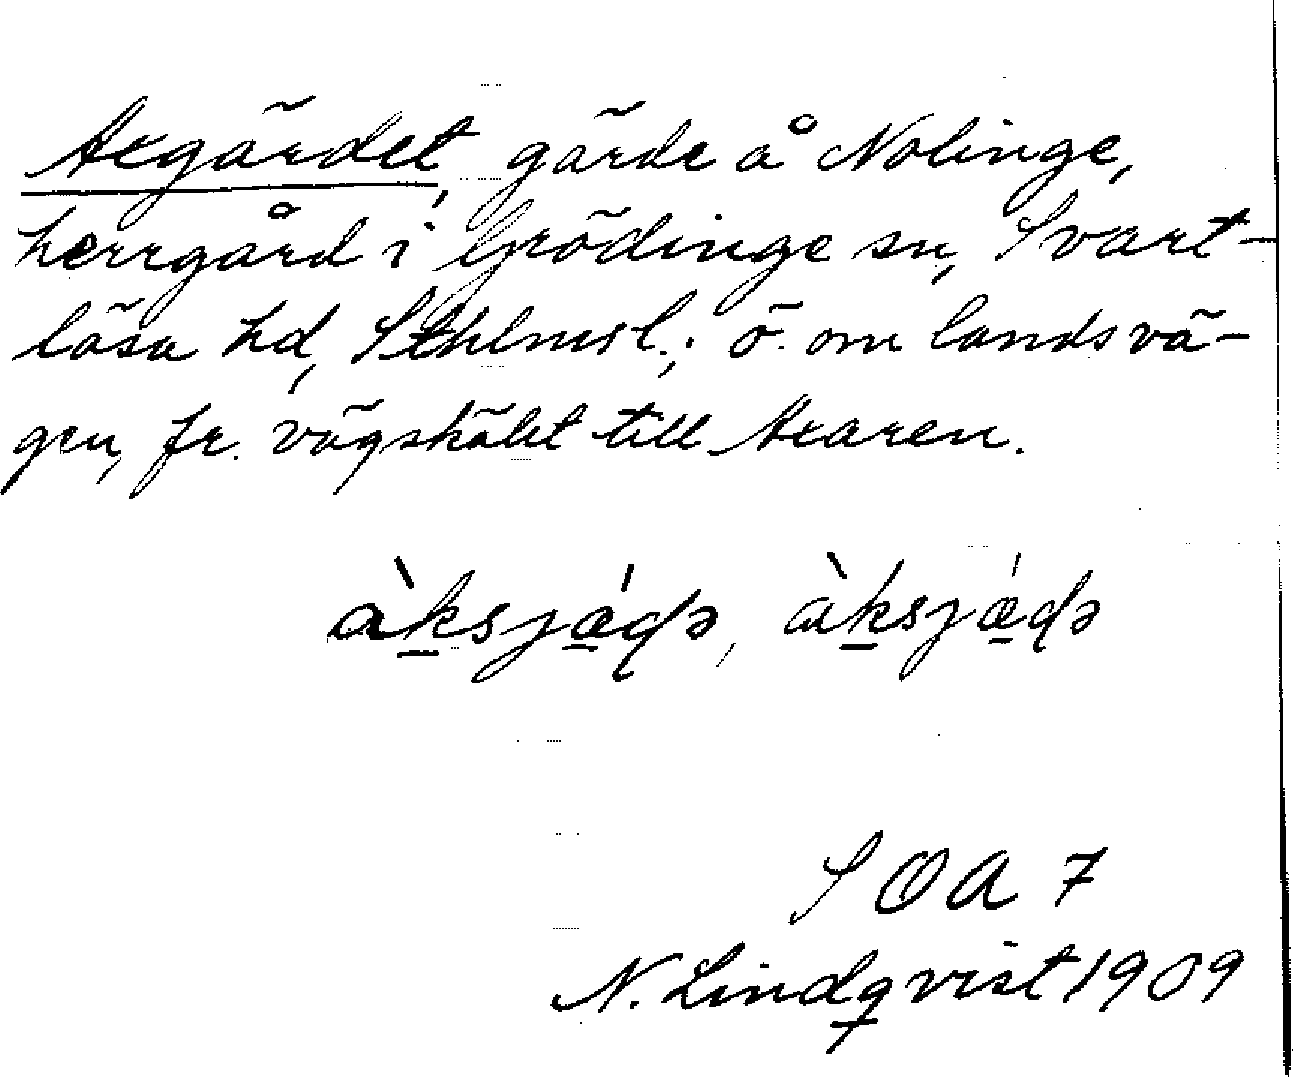 Axgärdet, gärde å Nolinge,
herrgård i Grödinge sn, Svart-
lösa hd, Sthlmsl.; ö. om landsvä-
gen, fr. vägskälet till Axaren.
àksjǽɖə, àksjǽɖə
SOA 7
N. Lindqvist 1909